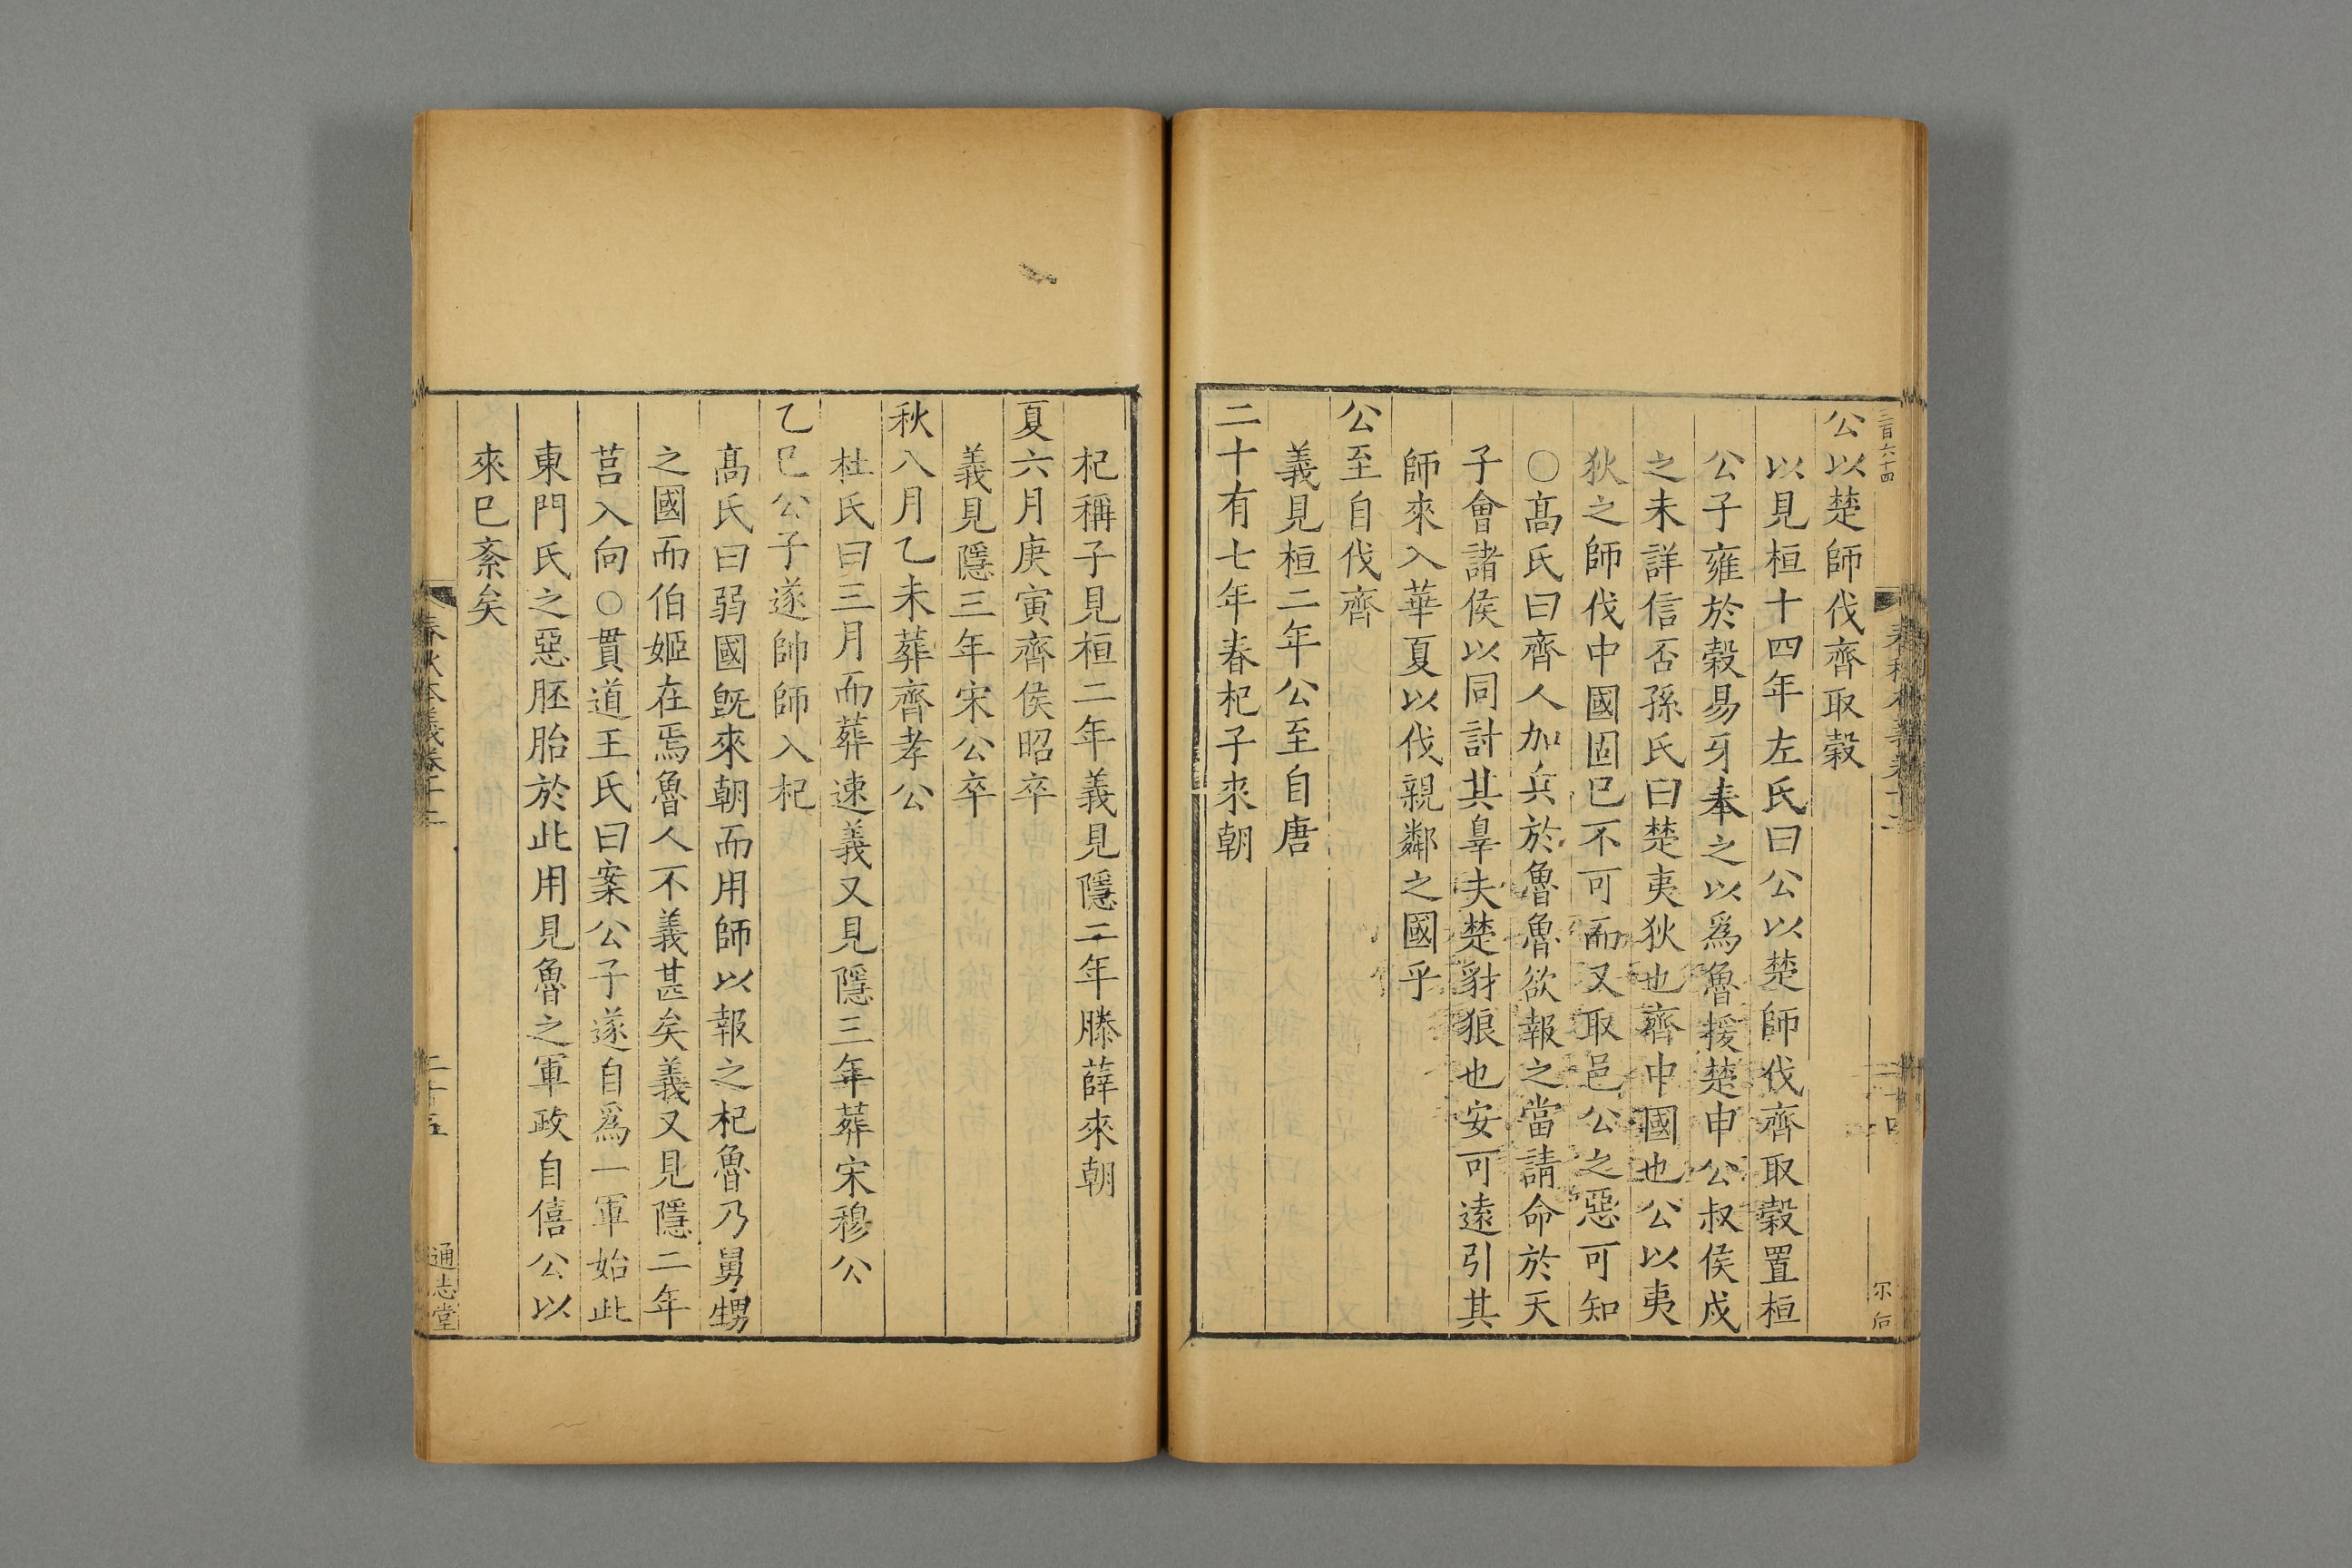 三百六十四
公以楚師伐齊取穀
以見桓十四年左氏曰公以楚師伐齊取穀置桓
公子雍於穀易牙奉之以爲魯援楚申公叔侯戍
之未詳信否孫氏曰楚夷狄也齊中國也公以夷
狄之師伐中國固已不可而又取邑公之惡可知
○髙氏曰齊人加兵於魯魯欲報之當請命於天
子會諸侯以同討其辠夫楚豺狼也安可遠引其
師來入華夏以伐親鄰之國乎
公至自伐齊
義見桓二年公至自唐
二十有七年春杞子來朝
杞稱子見桓二年義見隱二年滕薛來朝
夏六月庚寅齊侯昭卒
義見隱三年宋公卒
秋八月乙未葬齊孝公
杜氏曰三月而葬速義又見隱三年葬宋穆公
乙巳公子遂帥師入杞
髙氏曰弱國旣來朝而用師以報之杞魯乃舅甥
之國而伯姬在焉魯人不義甚矣義又見隱二年
莒入向○貫道王氏曰案公子遂自爲一軍始此
東門氏之惡胚胎於此用見魯之軍政自僖公以
來已紊矣
春秋本義卷十二
二十五
通志堂